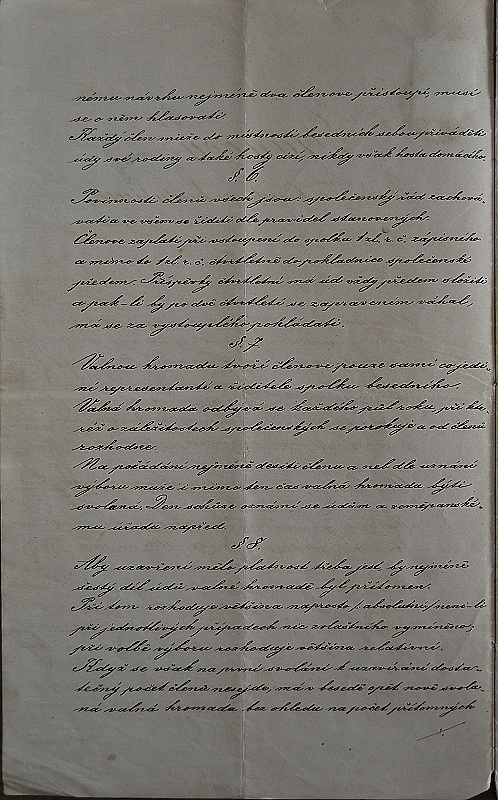 nému návrhu nejméně dva členové přistoupí, musí
se o něm hlasovati.
Každý člen může do místností besedních sebou přiváděti
údy své rodiny a také hosty cizí, nikdy však hosta domácího.
§. 6.
Povinnosti členů všech jsou: společenský řád zachová-
vati a ve všem se říditi dle pravidel stanovených.
Členové zaplatí při vstoupení do spolku 1 zl. r. č. zápisního
a mimo to 1 zl. r. č. čtvrtletně do pokladnice společenské
předem. Příspěvky čtvrtletní má úd vždy předem složiti
a pak-li by po dvě čtvrtletí se zapravením váhal,
má se za vystouplého pokládati.
§. 7.
Valnou hromadu tvoří členové pouze sami co jedi-
ní representanti a ředitelé spolku besedního.
Valná hromada odbývá se každého půl roku, při kte-
réž o záležitostech společenských se porokuje a od členů
rozhodne.
Na požádání nejméně desíti členů a neb dle uznání
výboru může i mimo ten čas valná hromada býti
svolaná. Den schůze oznámí se údům a zeměpanské-
mu úřadu napřed.
§ 8.
Aby uzavření mělo platnost třeba jest, by nejméně
šestý díl údů valné hromadě byl přítomen.
Při tom rozhoduje většina naprosto /:absolutní:/ není-li
při jednotlivých případech nic zvláštního vymíněno,
při volbě výboru rozhoduje většina relativní.
Když se však na první svolání k uzavírání dosta-
tečný počet členů nesejde, má v besedě opět nově svola-
ná valná hromada bez ohledu na počet přítomných